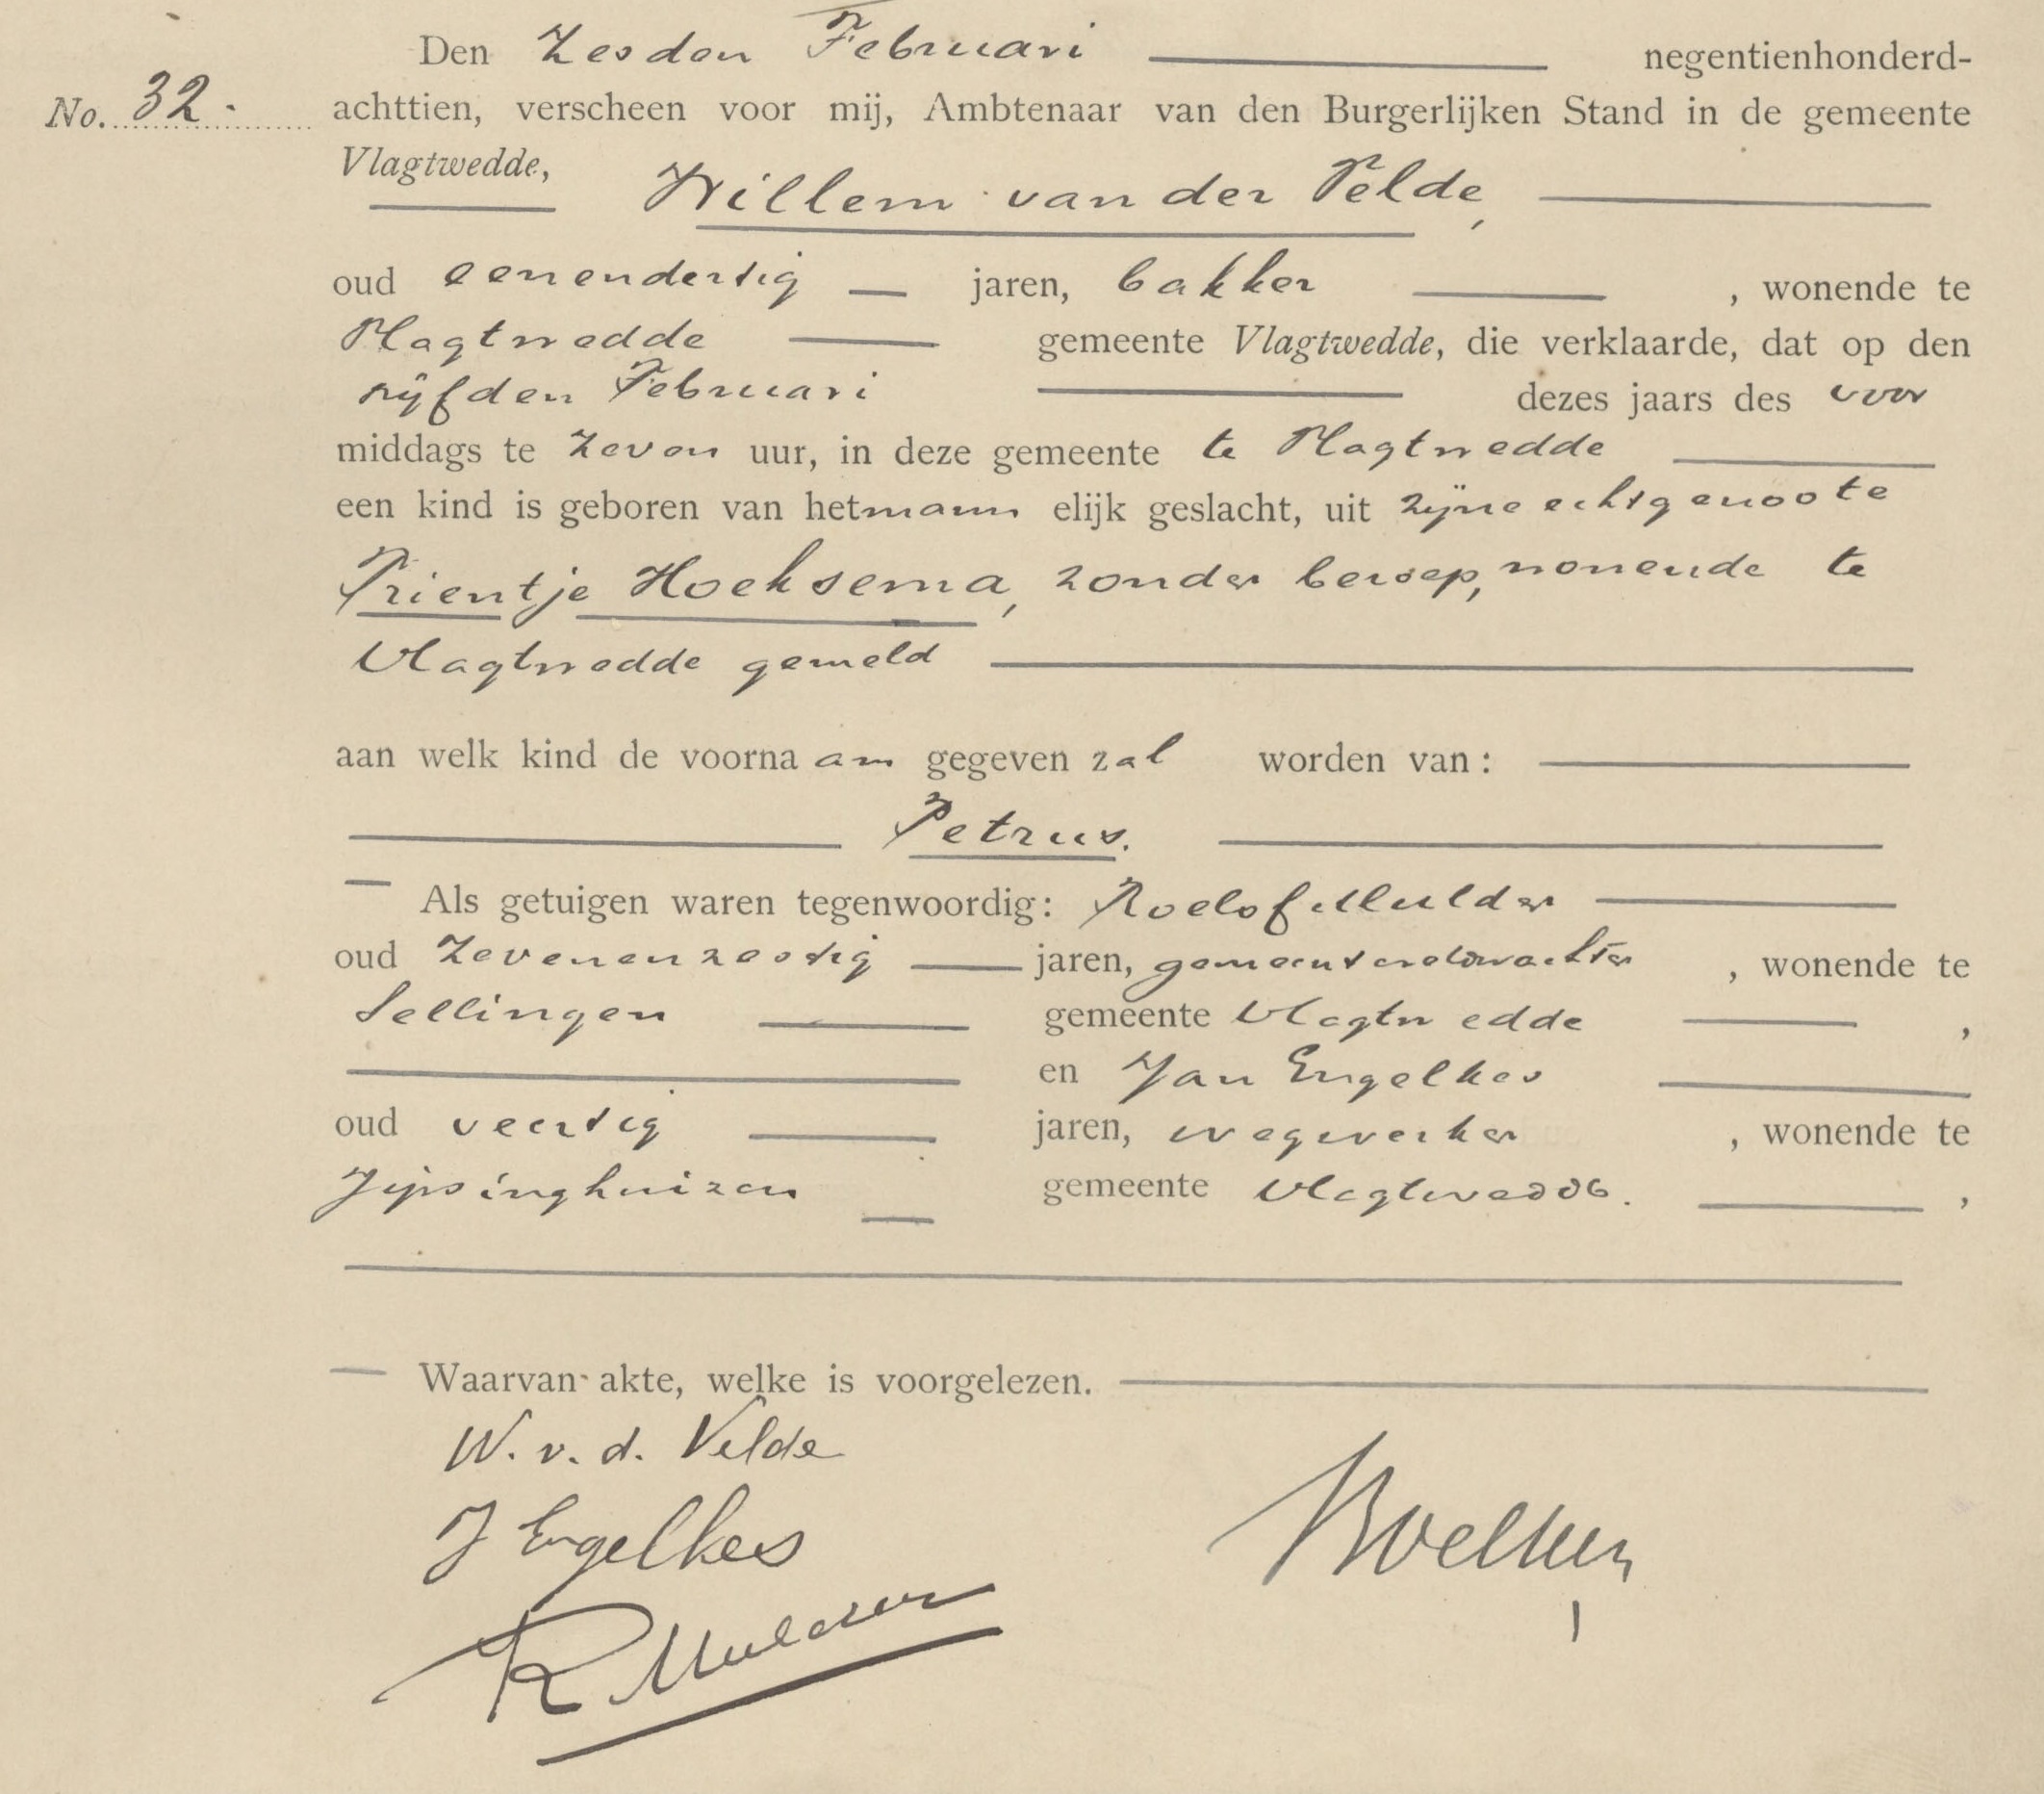 Den Zesden Februari negentienhonderd-
No. 32. achttien, verscheen voor mij, Ambtenaar van den Burgerlijken Stand in de gemeente
Vlagtwedde, Willem van der Velde,
oud eenendertig jaren, bakker , wonende te
Vlagtwedde gemeente Vlagtwedde, die verklaarde, dat op den
vijfden Februari dezes jaars des voor
middags te zeven uur, in deze gemeente te Vlagtwedde
een kind is geboren van het mann elijk geslacht, uit zijne echtgenoote
Trientje Hoeksema, zonder beroep, wonende te
Vlagtwedde gemeld
aan welk kind de voorna am gegeven zal worden van:
Petrus.
Als getuigen waren tegenwoordig: Roelof Mulder
oud zevenenzestig jaren, gemeenteveldwachter , wonende te
Sellingen gemeente Vlagtwedde ,
en Jan Engelkes
oud veertig jaren, wegwerker , wonende te
Jipsinghuizen gemeente Vlagtwedde. ,
Waarvan akte, welke is voorgelezen.
W. v. d. Velde
J Engelkes
R Mulder